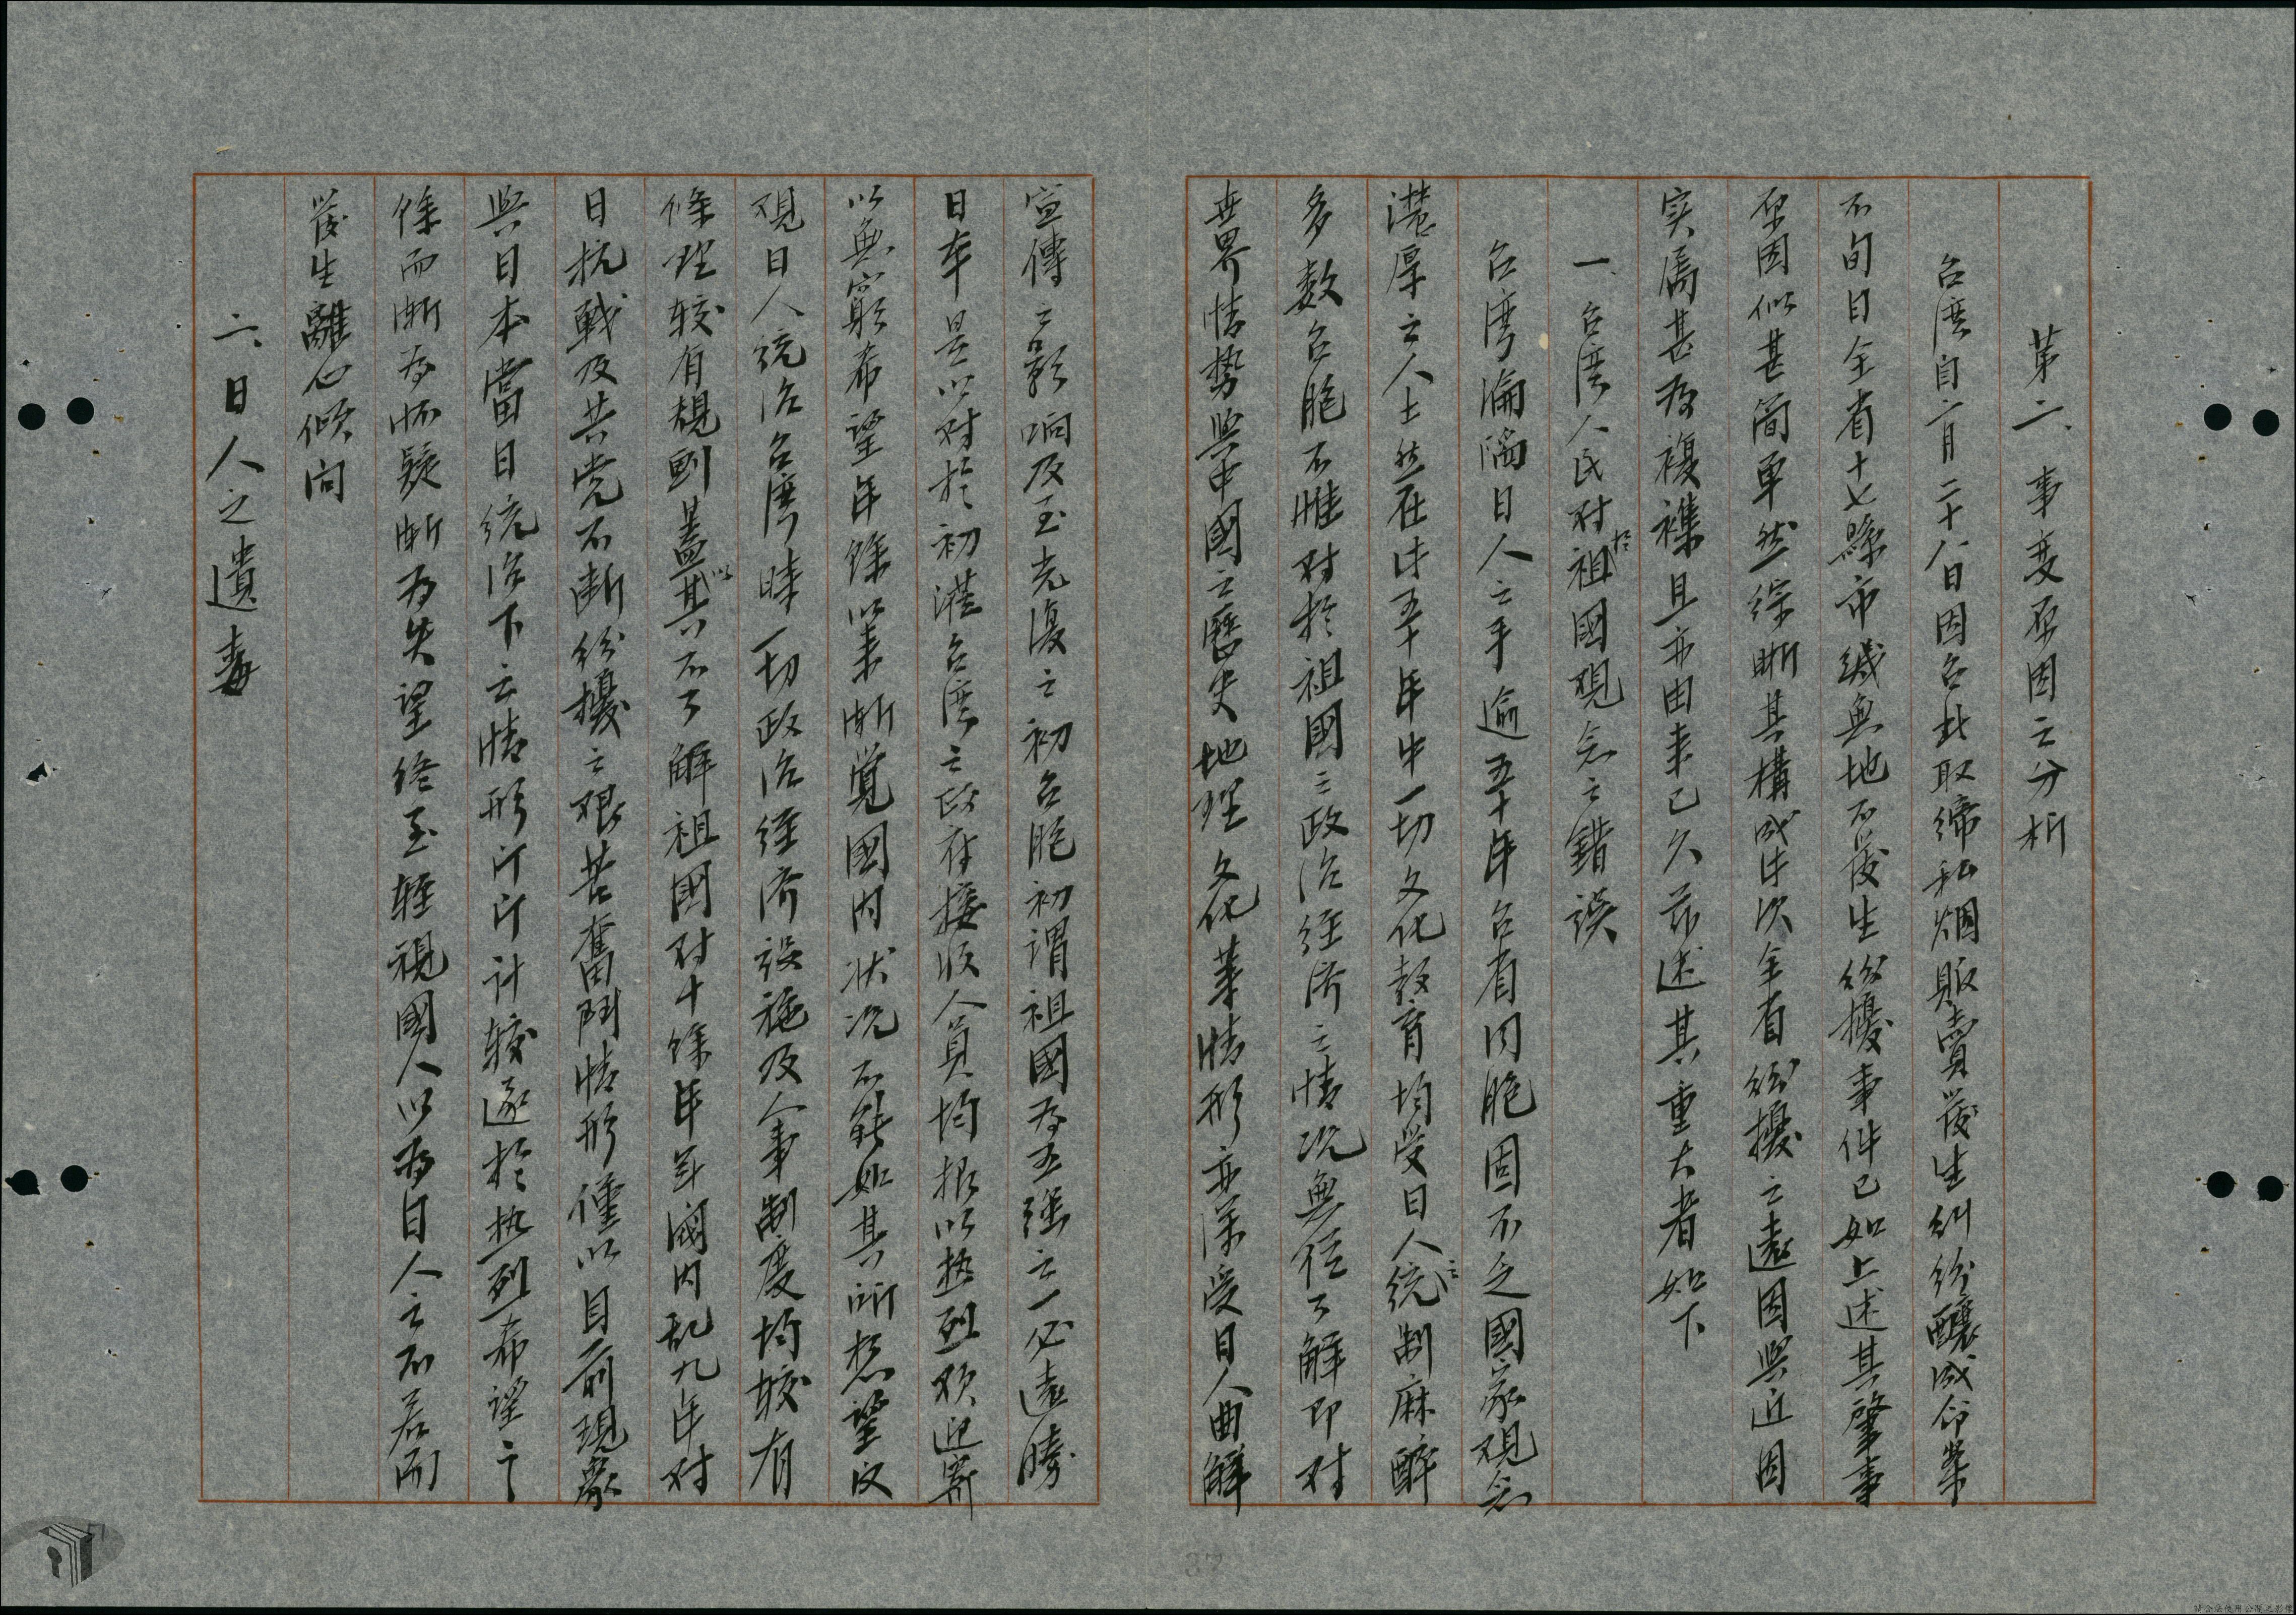 第二、事变原因之分析
台湾自二月二十八日因台北取缔私烟贩卖發生糾紛釀成命案
不旬日全省十七縣市幾無地不發生紛擾事件已如上述其肇事
原因似甚简单然综晰其構成此次全省紛擾之遠因與近因
实属甚為複雜且亦由来已久茲述其重大者如下
一、台湾人民对於祖國观念之錯誤
台湾淪陷日人之手逾五十年台省同胞固不乏國家观念
濃厚之人士然在此五十年中一切文化教育均受日人之統制麻醉
多数台胞不惟对於祖國之政治经济之情况無從了解即对
世界情势與中國之歷史地理文化革情形亦深受日人曲解
宣傳之影响及至光復之初台胞初謂祖國為五强之一必遠勝
日本是以对於初蒞台湾之政府接收人員均报以热烈欢迎寄
以無窮希望年餘以来漸覺國内状况不能如其所想望反
观日人统治台湾時一切政治经济設施及人事制度均較有
條理较有規則蓋以其不了解祖國对十餘年来國内乱九年对
日抗戰及共党不断紛擾之艰苦奮鬥情形僅以目前現象
與日本當日統治下之情形斤斤计较遂於热烈希望之
餘而漸為怀疑漸為失望终至轻視國人以為日人之不若而
發生離心倾向
二、日人之遺毒
37